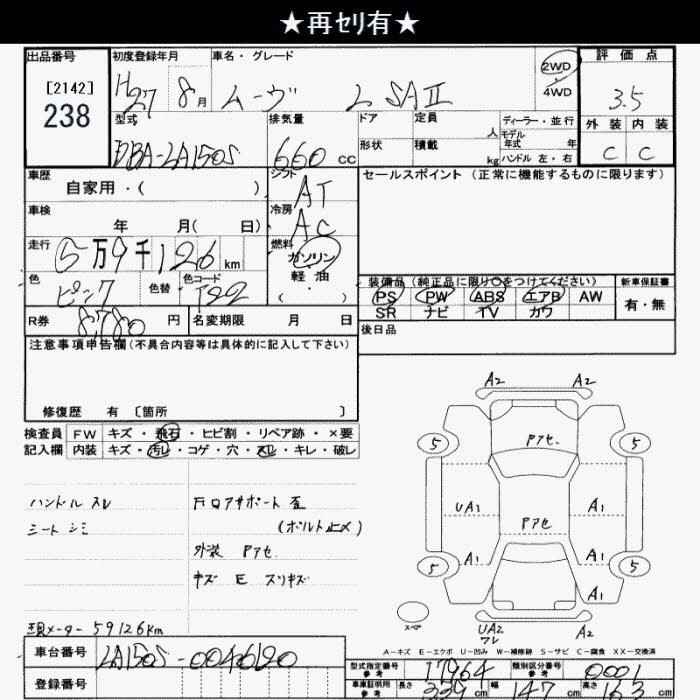 ★再セリ有★
出品番号 初度登録年月 車名・グレード 評価点
[2142]
238
H27 8月 ムーヴ L SAⅡ 2WD・4WD 3.5
型式 排気量 ドア 定員 人 ディーラー・並行 外装 内装
モデル年式 年
DBA-LA150S 660cc 形状 積載 kg ハンドル 左・右 C C
車歴 シフト セールスポイント (正常に機能するものに限ります)
自家用・( ) AT
車検 冷房
年 月( 日) AC
走行 燃料
5万9千126km ガソリン
軽油
・( )
色 色替 色コード 装備品 (純正品に限り○をつけてください) 新車保証書
ピンク PS PW ABS エアB AW 有・無
SR ナビ TV カワ
R券 8780円 名変期限 月 日 後日品
注意事項申告欄(不具合内容等は具体的に記入して下さい)
修復歴 有 〔箇所 〕
検査員 FW キズ・飛石・ヒビ割・リペア跡・×要
記入欄 内装 キズ・汚レ・コゲ・穴・スレ・キレ・破レ
ハンドル スレ
シート シミ
Fロアサポート 歪
(ボルト止メ)
外装 Pアセ
キズ E スリキズ
現メーター 59126km
A2 A2
5 Pアセ 5
UA1 Pアセ A1
5 A1 A1 5
A1
スペア UA2 A2
マレ
A-キズ E-エクボ U-凹み W-補修跡 S-サビ C-腐食 XX-交換済
車台番号 LA150S-0046190
登録番号
型式指定番号 参考 17964 類別区分番号 参考 0001
車車証明用 参考 長さ 339cm 幅 147cm 高さ 163cm